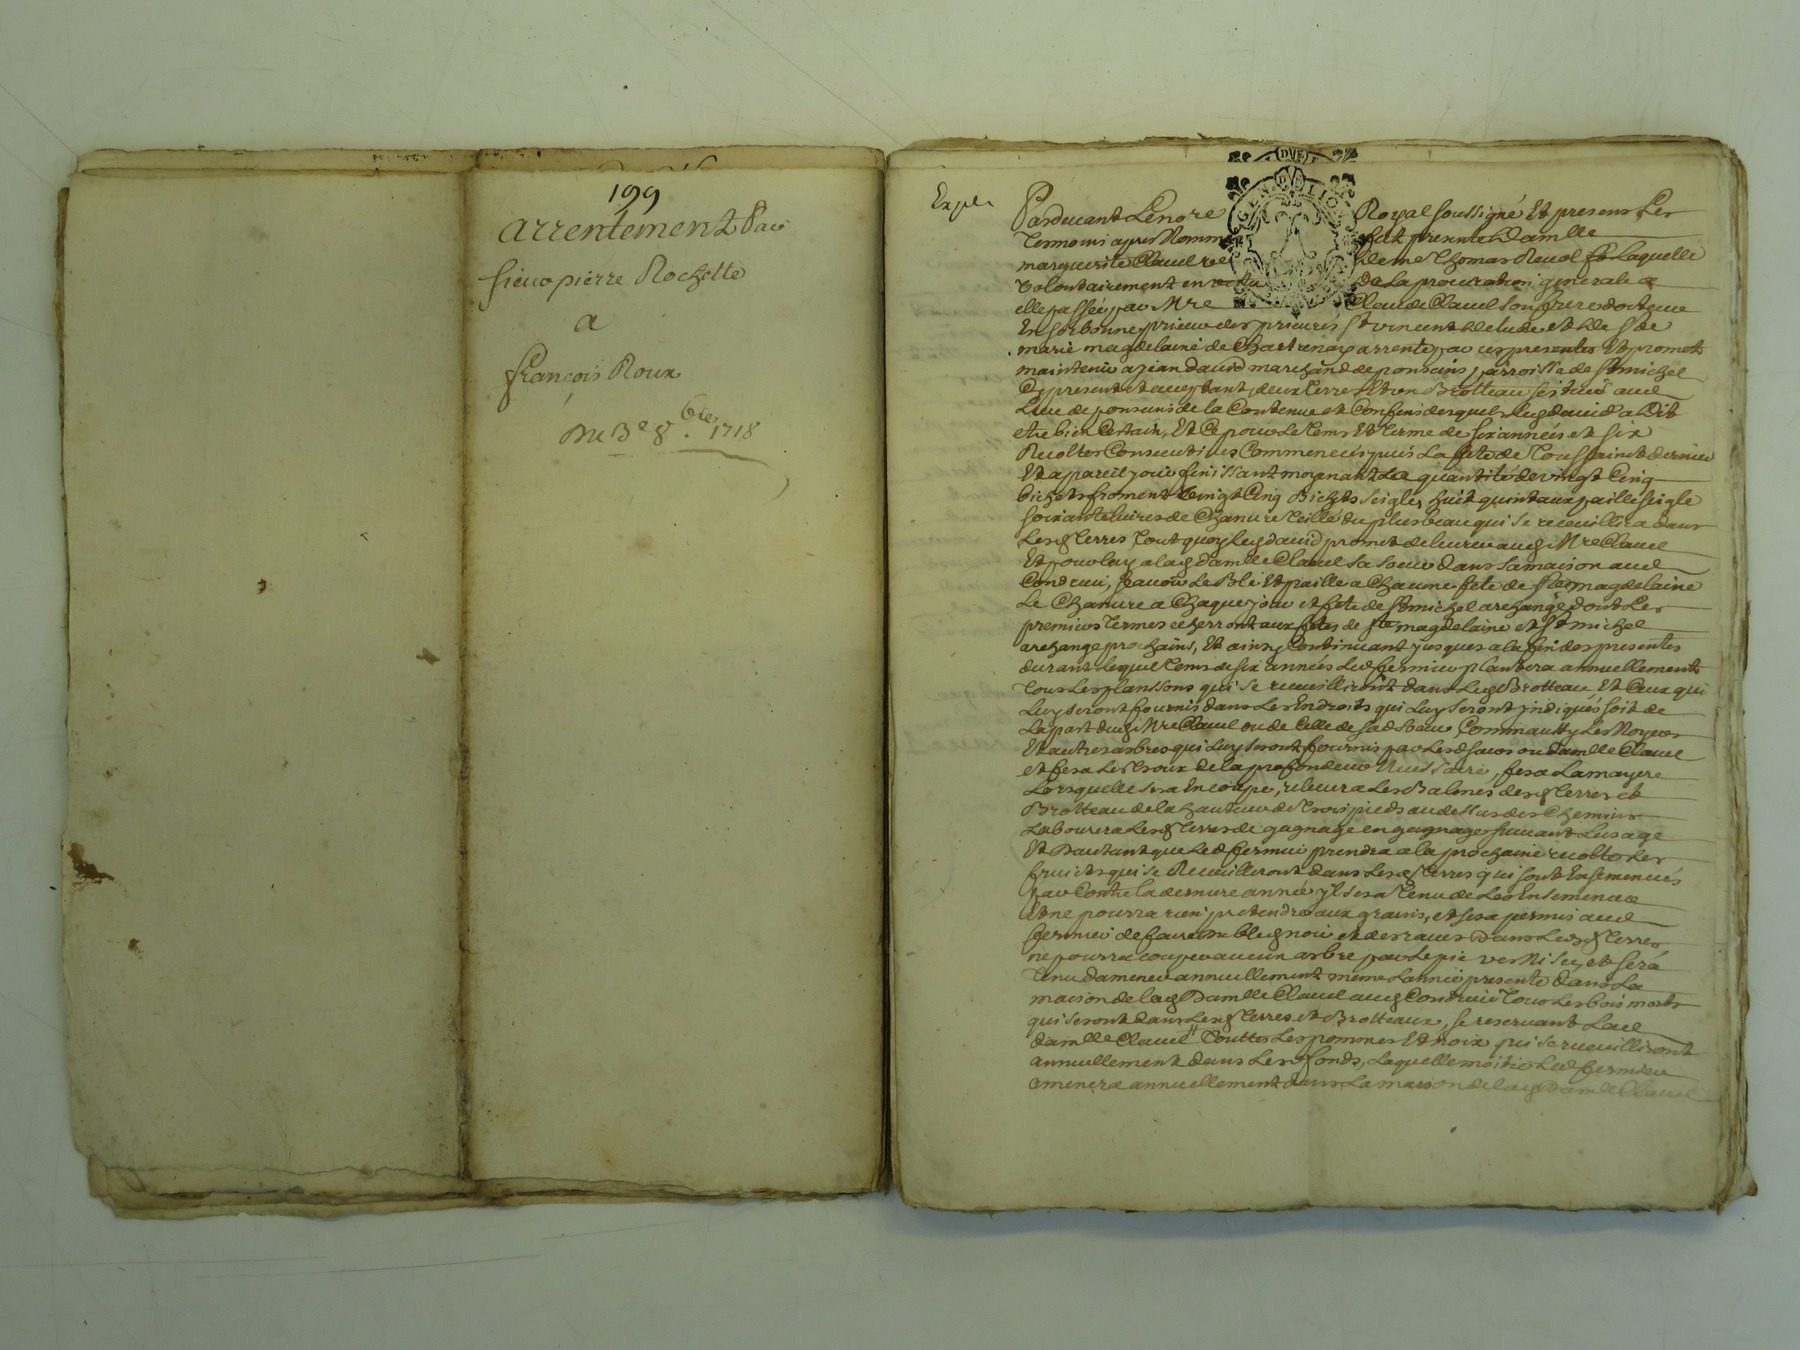 199
arrentement Par
sieur pierre Rochette
a
françois Roux
Du 3e 8bre 1718
Expe
Pardevant Le no.re Royal soussigné Et presens Les
Temoins apres Nommés fut presente Damlle
marguerite Clavel de me Thomas Revol Laquelle
volontairement en vertu De La procuration generale a
elle passée par Mre Claude Clavel son frere docteur
En sorbonne prieur des prieurés St vincent et de Ste
marie magdelaine de arrente par ces presentes Et promet
maintenir a jean david marchand de ponsuins parroisse de St michel
Cy present et acceptant, deux terres Et un Brotteau scitués aud
Lieu de ponsuins de la Contenue et Confins desquels Led david a Dit
etre bien Certain, Et Ce pour Le tems Et terme de six années et six
Recoltes Consecutives Commencées puis La fete de Toussaint dernier
Et a pareil jour finissant moyenant La quantité de vingt Cinq
bichets froment vingt Cinq Bichets seigle, huit quintaux paille seigle
soixante livres de Chanvre teillé du plus beau qui se recueillira dans
Lesd terres, Tout quoy Led david promet delivrer aud Mre Clavel
Et pour luy a lad Damlle Clavel sa soeur dans sa maison aud
Condrieu, scavoir Le Blé Et paille a Chacune fete de Ste magdelaine
Le Chanvre a Chaque jour et fete de St michel archange dont Les
premiers termes echerront aux fetes de Ste magdelaine et St michel
archange prochains, Et ainsy Continuant jusques a la fin des presentes
durant lequel tems de six années Led fermier plantera annuellement
Tous Les planssons qui se recueilliront dans Led Brotteau, Et Ceux qui
Luy seront fournis dans Les Endroits qui Luy seront indiqués soit de
La part dud Mre Clavel ou de Celle de sad soeur, Comme aussy Les Noyers
Et autres arbres qui Luy seront fournis par Lesd sieur ou Damlle Clavel
et fera Les Troux de la profondeur Necessaire, fera La
Lorsquelle sera En coupe, relevera Les Balmes desd terres et
Brotteau de la hauteur de Trois pieds au dessus des Chemins
Labourera Lesd terres de gagnage en gagnage suivant Lusage
Et Dautant que Led fermier prendra a la prochaine recolte Les
fruicts qui se Recueilleront dans Lesd terres qui sont Ensemencées
par Contre la derniere année yl sera Tenu de Les Ensemencer
Et ne pourra rien pretendre aux grains, et sera permis aud
fermier de faire du bled noir et des raves Dans Lesd terres
ne pourra couper aucun arbre par Le pie ver Ni sec, et sera
Tenu damener annuellement meme Lannée presente dans La
maison de lad Damlle Clavel aud Condrieu Tous Les bois morts
qui seront dans Lesd terres et Brotteaux, se reservant Lad
damlle Clavel # Touttes Les pommes Et noix qui se recueilliront
annuellement dans Lesd fonds, Laquelle moitié Led fermier
amenera annuellement dans La maison de lad Damlle Clavel